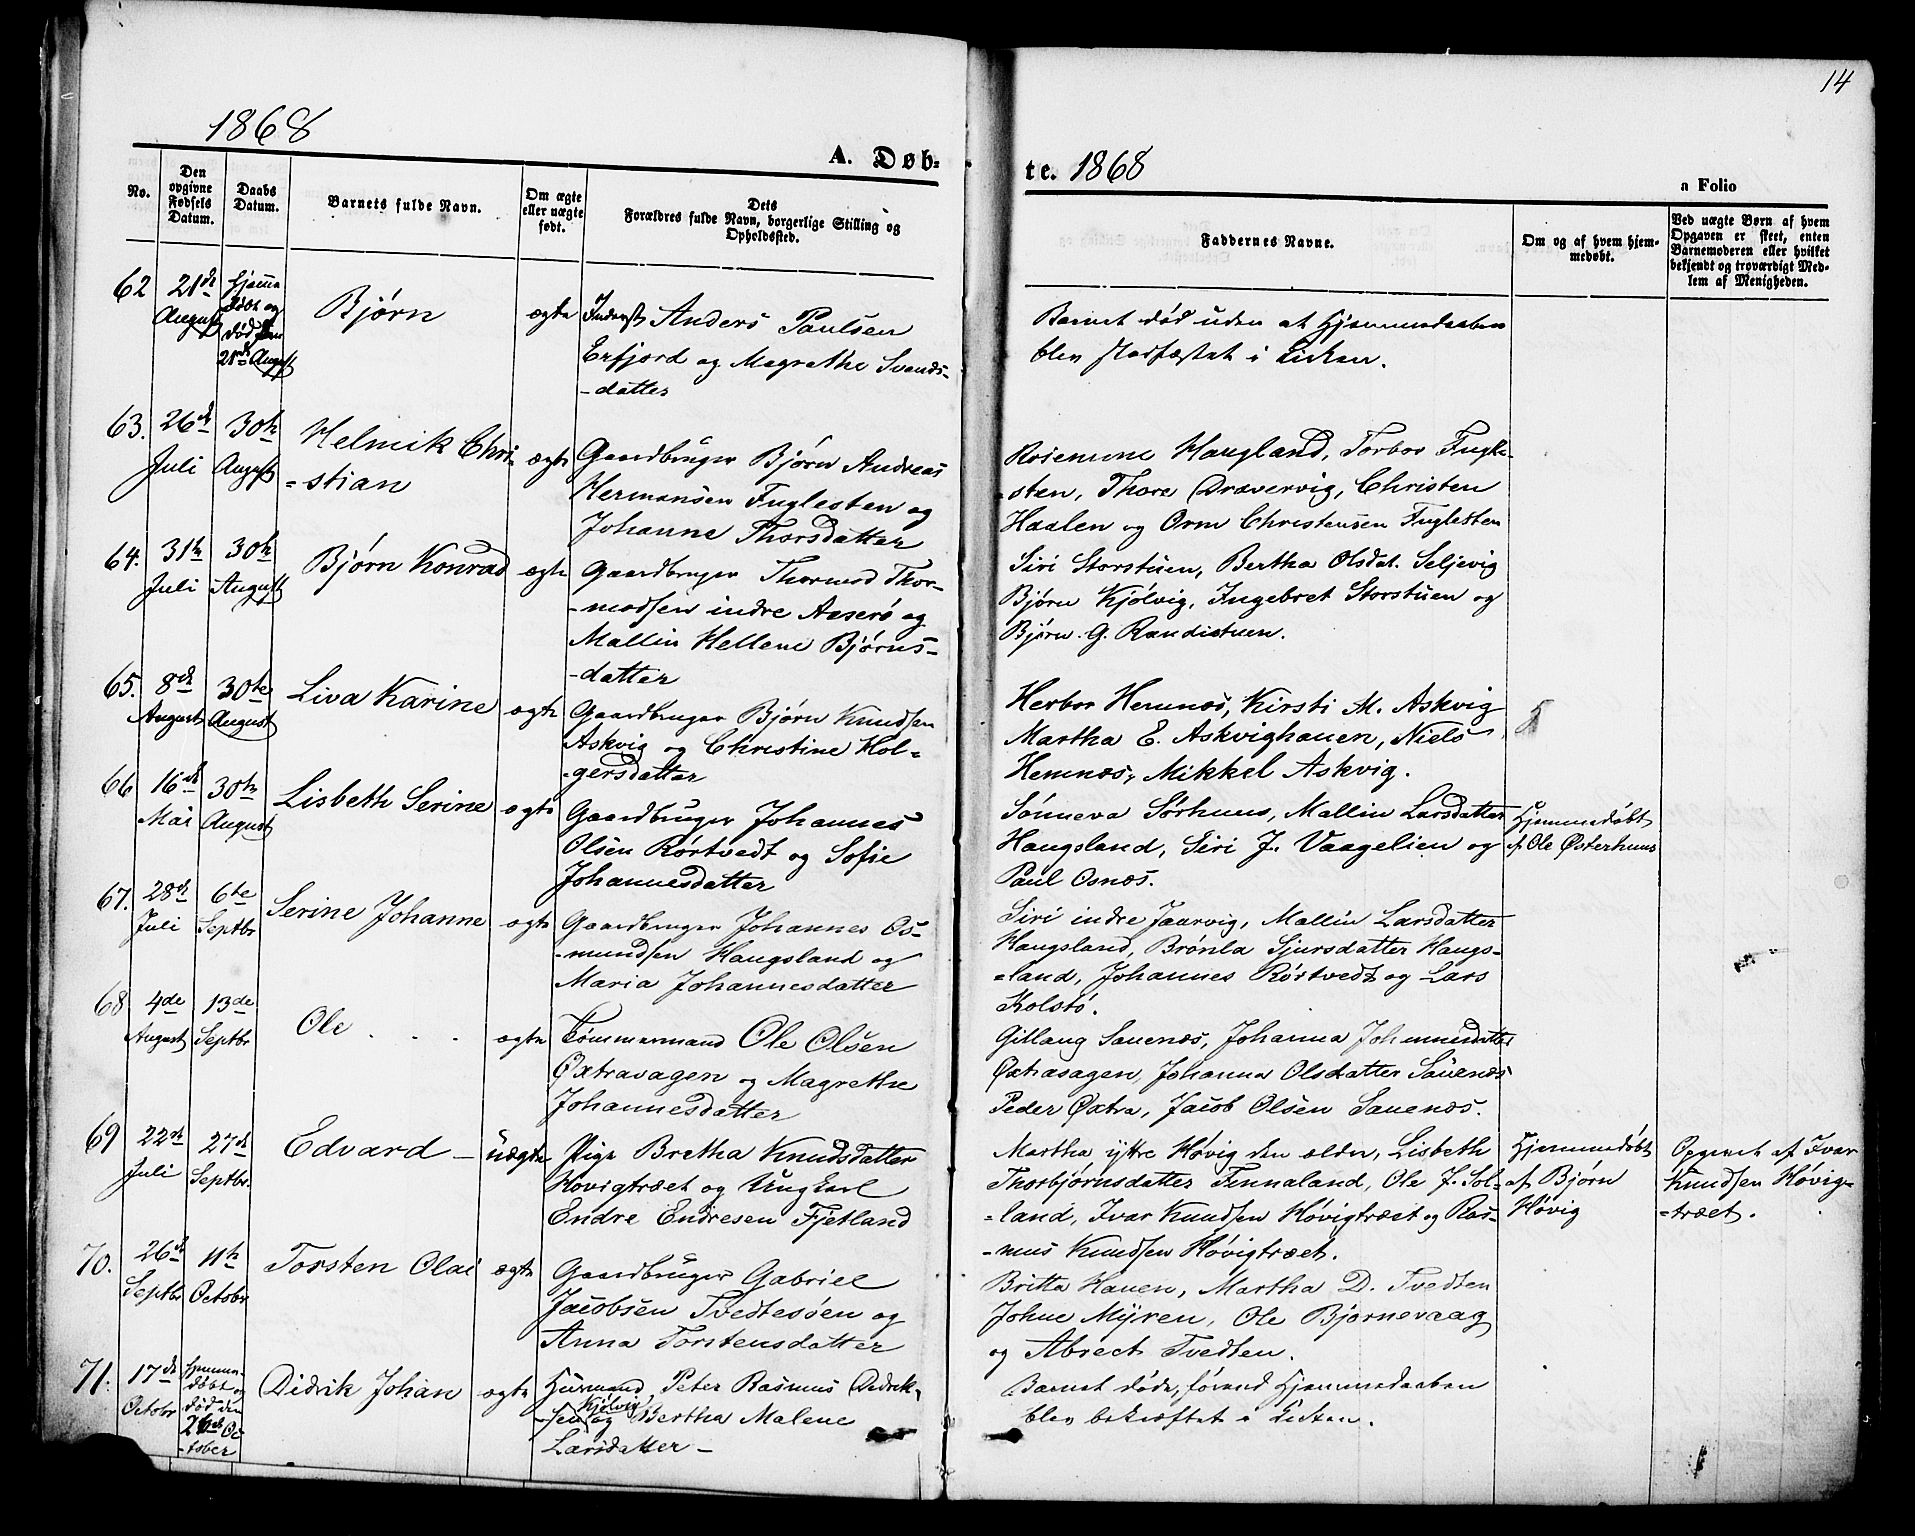 14
1868
A. Døb-
te. 1868
a Folio
No.
Den opgivne Fødsels Datum.
Daabs Datum.
Barnets fulde Navn.
Om ægte eller uægte født.
Dets Forældres fulde Navn, borgerlige Stilling og Opholdssted.
Faddernes Navne.
Om og af hvem hjemmedøbt.
Ved uægte Børn af hvem Opgaven er skeet, enten Barnemoderen eller hvilket bekjendt og troværdigt Medlem af Menigheden.
62 21de August
Hjemmedøbt og død den 21de August
Bjørn
ægte
Inderst Anders Paulsen
Erfjord og Magrethe Svends-
-datter
Barnet død uden at Hjemmedaaben
blev stadfæstet i Kirken.
63. 26de Juli
30te August
Helmik Chri-
-stian
ægte
Gaardbruger Bjørn Andreas
Hermansen Fuglesten og
Johanne Thorsdatter
Rosemune Haugland, Torbor Fugle-
-sten, Thore Drævervig, Christen
Haalen og Orm Christensen Fuglesten
64. 31te Juli
30te August
Bjørn Konrad
ægte
Gaardbruger Thormod Thor-
-modsen indre Aaserø og
Mallin Hellene Bjørns-
-datter
Siri Storstuen, Bertha Olsdat. Seljevig
Bjørn Kjølvig, Ingebret Storstuen og
Bjørn G. Randistuen.
65. 8de August
30te August
Liva Karine
ægte
Gaardbruger Bjørn Knudsen
Askvig og Christine Hol-
-gersdatter
Herbor Hemnæs, Kirsti M. Askvig
Martha E. Askvighauen, Niels
Hemnæs, Mikkel Askvig.
66 16de Mai
30te August
Lisbeth Serine
ægte
Gaardbruger Johannes
Olsen Rørtvedt og Sofie
Johannesdatter
Sønneva Sørhuus, Mallin Larsdatter
Haugsland, Siri J. Vaagelien og
Paul Osnæs.
Hjemmedøbt
af Ole Østerhuus
67. 28de Juli
6te Septbr
Serine Johanne
ægte
Gaardbruger Johannes Os-
-mundsen Haugsland og
Maria Johannesdatter
Siri indre Jaarvig, Mallin Larsdatter
Haugsland, Brønla Sjursdatter Haugs-
-land, Johannes Rørtvedt og Lars
Kolstø.
68 4de August
13de Septbr
Ole
ægte
Tømmermand Ole Olsen
Øxtravagen og Magrethe
Johannesdatter
Gitlaug Sauenæs, Johanna Johannesdatter
Øxtrasagen, Johanna Olsdatter Sauenæs
Peder Øxtra, Jacob Olsen Sauenæs.
69 22de Juli
27de Septbr.
Edvard
uægte
Pige Bretha Knudsdatter
Hovigtræet og Ungkarl
Endre Endresen Fjetland
Martha ytre Høvig den ældre, Lisbeth
Thorbjørnsdatter Finnaland, Ole J. Sol-
-land, Ivar Knudsen Høvigtræet og Ras-
-mus Knudsen Høvigtræet.
Hjemmedøbt
af Bjørn
Høvig
Opgivet af Ivar
Knudsen Høvig-
-træet.
70. 26de Septbr
11te Octobr
Torsten Olai
ægte
Gaardbruger Gabriel
Jacobsen Tvedtesøen og
Anna Torstensdatter
Britta Hauen, Martha D. Tvedten
Johne Myren, Ole Bjørnevaag
og Abrect Tvedten.
71. 17de Octobr
Hjemme-
døbt og
død den
26de Oc-
-tober
Didrik Johan
ægte
Huusmand Peter Rasmus Didrik-
-sen Kjølvig og Bertha Malene
Larsdatter
Barnet døde, førend Hjemmedaaben
blev bekræftet i Kirken.